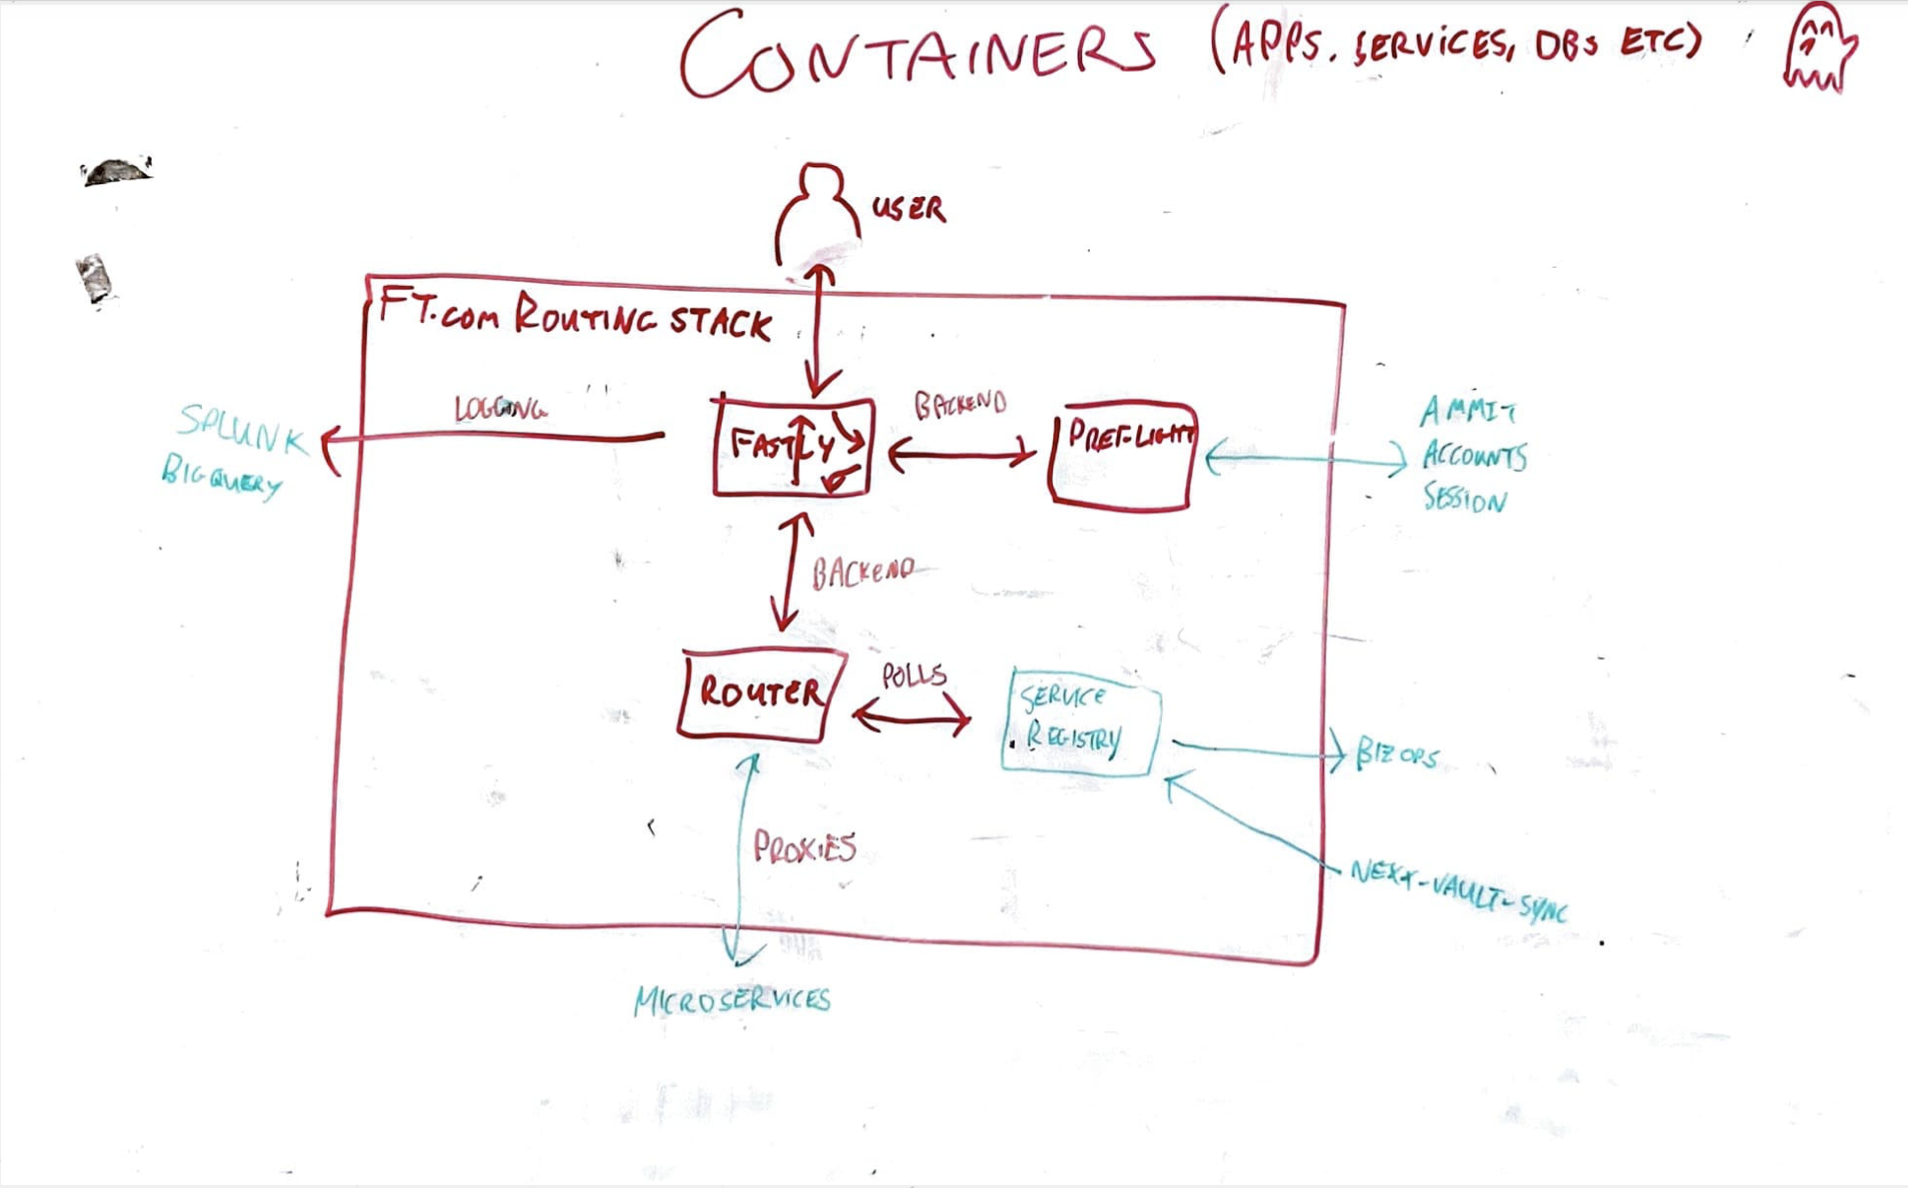 CONTAINERS (APPS, SERVICES, DBs ETC)
USER
FT.com ROUTING STACK
LOGGING
SPLUNK
BIGQUERY
FASTLY
BACKEND
PREFLIGHT
AMMIT
ACCOUNTS
SESSION
BACKEND
ROUTER
POLLS
SERVICE
REGISTRY
BIZ OPS
PROXIES
NEXT-VAULT-SYNC
MICROSERVICES